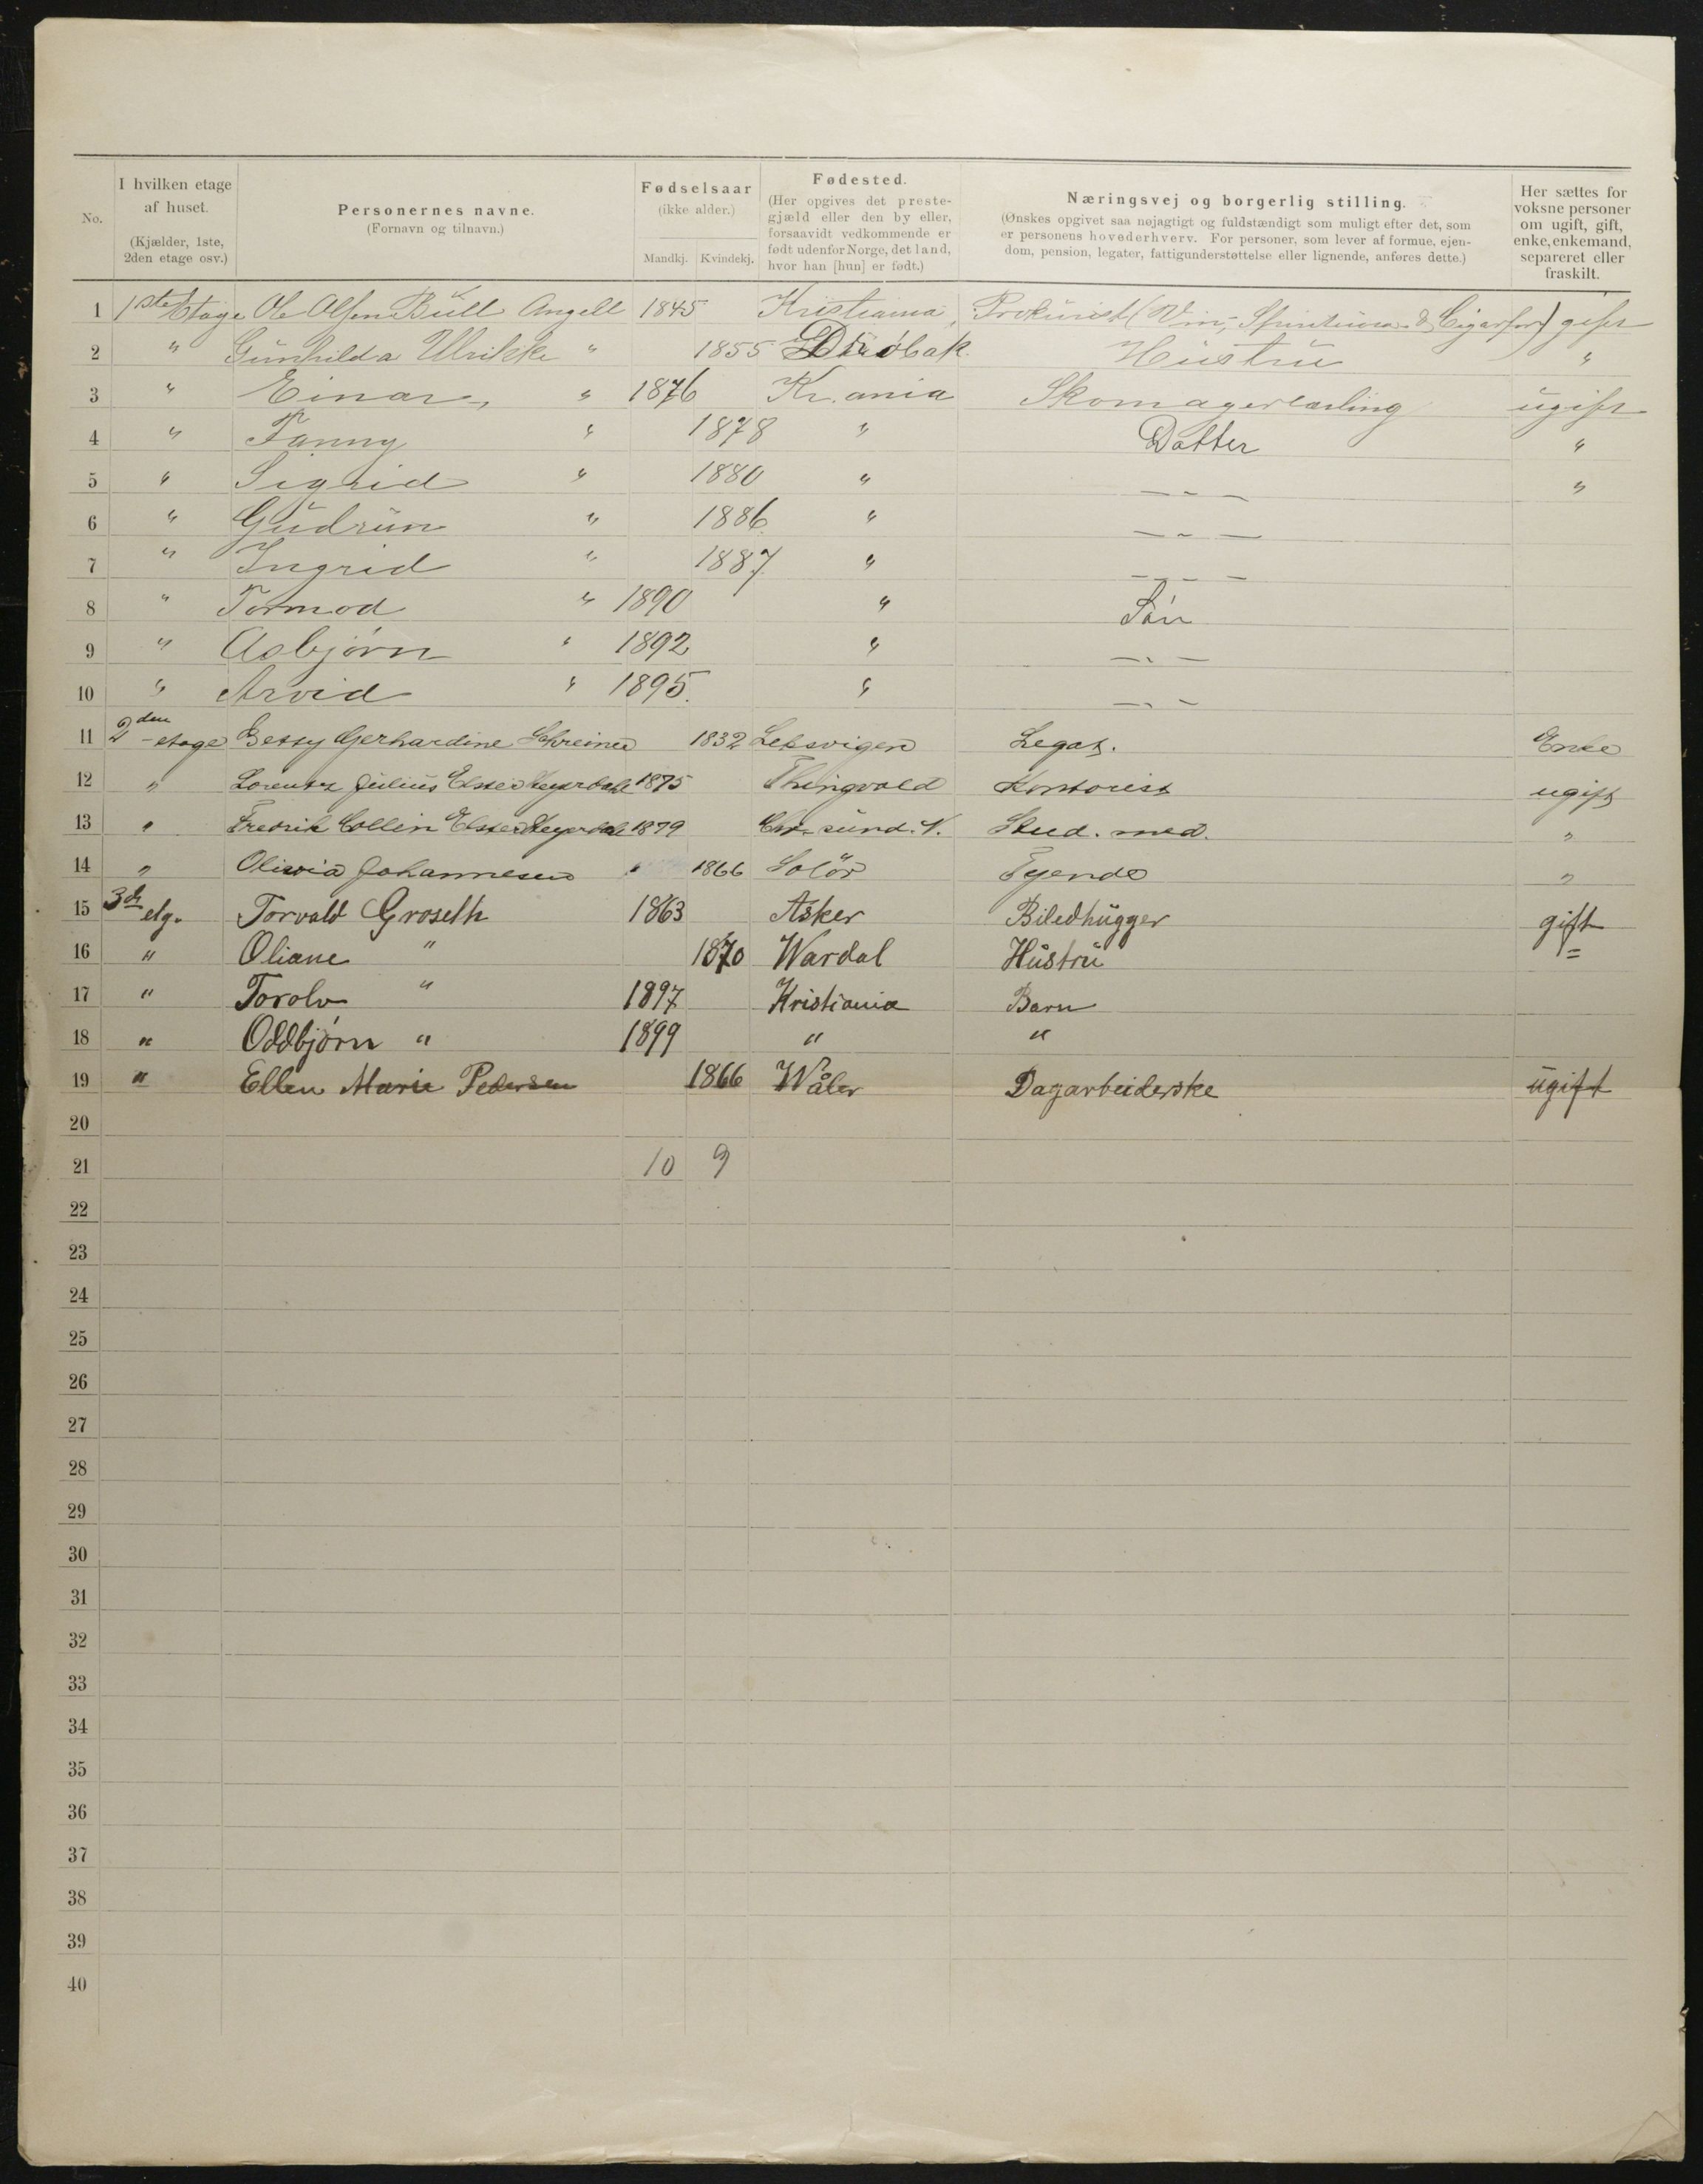 No.
I hvilken etage af huset. (Kjælder, 1ste, 2den etage osv.)
Personernes navne. (Fornavn og tilnavn.)
Fødselsaar (ikke alder.) Mandkj. Kvindekj.
Fødested. (Her opgives det prestegjæld eller den by eller, forsaavidt vedkommende er født udenfor Norge, det land, hvor han [hun] er født.)
Næringsvej og borgerlig stilling. (Ønskes opgivet saa nøjagtigt og fuldstændigt som muligt efter det, som er personens hovederhverv. For personer, som lever af formue, ejendom, pension, legater, fattigunderstøttelse eller lignende, anføres dette.)
Her sættes for voksne personer om ugift, gift, enke, enkemand, separeret eller fraskilt.
1 1ste Etage Ole Olsen Bull Angell 1845 Kristiania Prokurist (Vin, & Cigarfor) gift
2 " Gunhilda Ulrikke " 1855 Drøbak. Hustru "
3 " Einar " 1876 Kr.ania Skomagerlærling ugift
4 " Fanny " 1878 " Datter "
5 " Sigrid " 1880 " — " — "
6 " Gudrun " 1886 " — " —
7 " Ingrid " 1887 " — " —
8 " Tormod " 1890 " Søn
9 " Asbjørn " 1892 " — " —
10 " Arvid " 1895. " — " —
11 2den etage Betsy Gerhardine Schreiner 1832 Leksvigen Legat. Enke
12 " Lorentz Julius Elster Heyerdahl 1875 Thingvold Kontorist ugift
13 " Fredrik Collin Elster Heyerdahl 1879 Chr.sund. N. Stud. med. "
14 " Olivia Johannesen 1866 Solör Tyende "
15 3de etg. Torvald Groseth 1863 Asker Biledhugger gift
16 " Oliane " 1870 Wardal Hustru =
17 " Torolv " 1897 Kristiania Barn
18 " Oddbjørn " 1899 " "
19 " Ellen Marie Pedersen 1866 Wåler Dagarbeiderske ugift
20
21 10 9
22
23
24
25
26
27
28
29
30
31
32
33
34
35
36
37
38
39
40